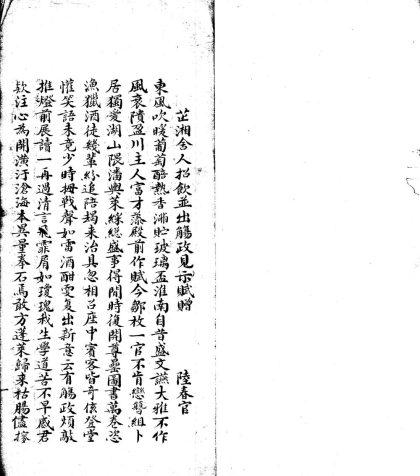 芷湘舍人招飲並出觴政見示賦贈
陸春官
東風吹暖葡萄醅熟香浦貯玻璃盃淮南自昔盛文讌大雅不作
風衰隤盈川主人富才藻殿前作賦今鄒枚一官不肯戀簪組卜
居獨愛湖山隈潘輿萊綵總盛事得閒時復開尊罍圖書萬卷恣
漁獵酒徒幾輩紛追陪蝎来治具忽相召座中賓客皆奇侅登堂
懽笑語未竟少時拇戰聲如雷酒酣雯复出新意云有觴政煩敲
推燈前展讀一再過清言飛霏屑如瓊瑰我生學道苦不早感君
欵注心為開潢汙澄海本異量拳石焉敢方蓬萊歸来枯腸儘搜